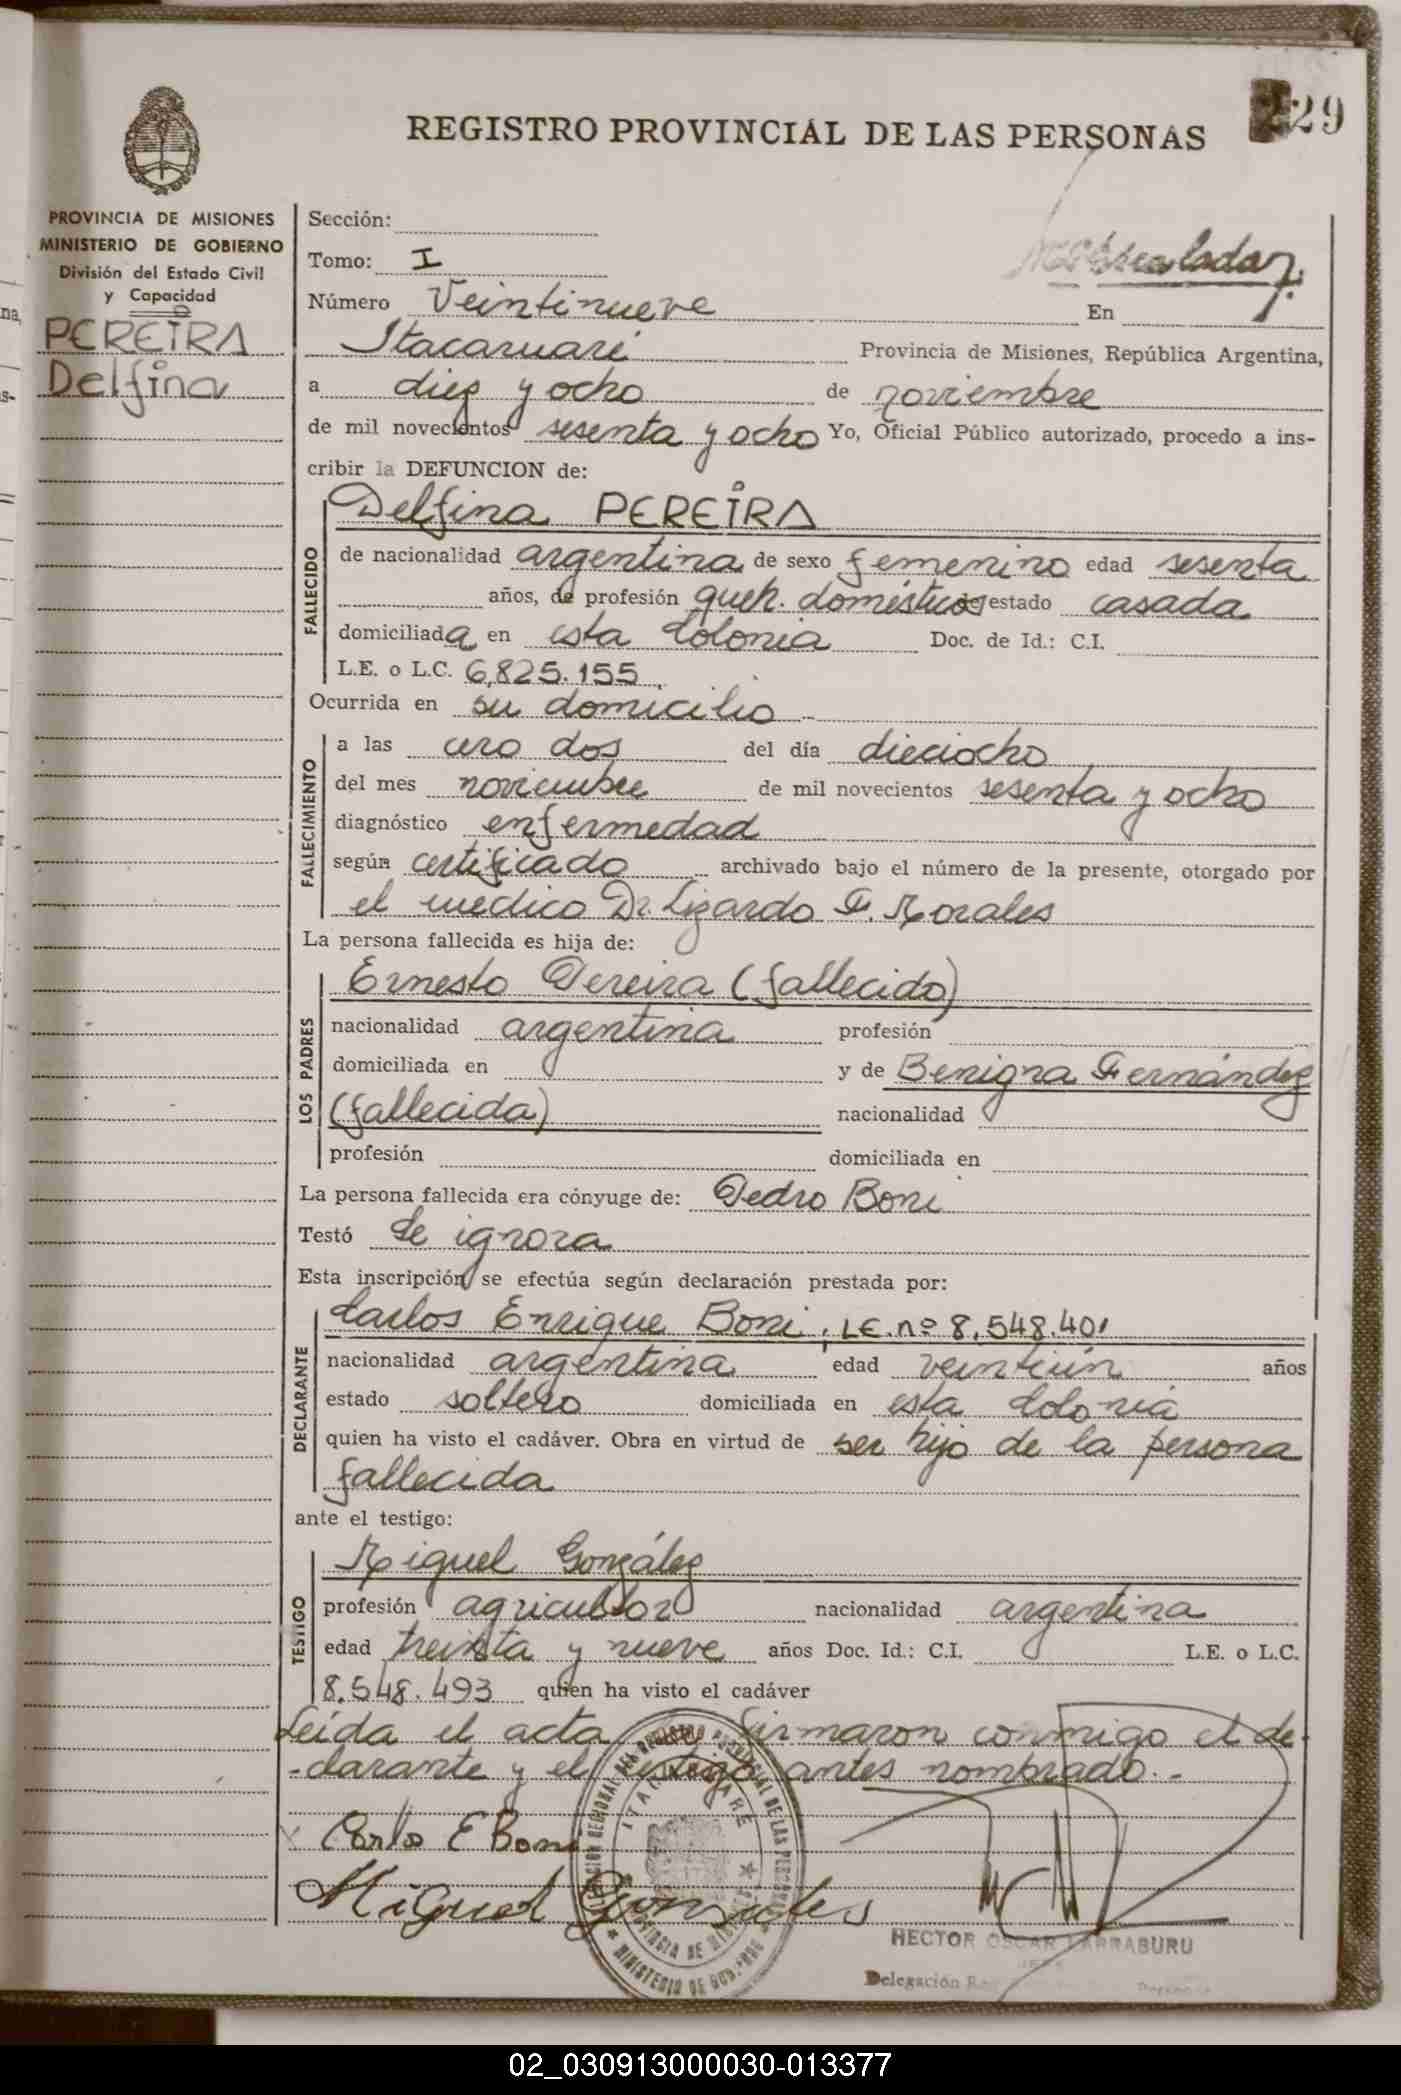 29
REGISTRO PROVINCIAL DE LAS PERSONAS
PROVINCIA DE MISIONES
MINISTERIO DE GOBIERNO
División del Estado Civil
y Capacidad
PEREIRA
Delfina
Sección:
Tomo: I
Número Veintinueve En
Itacaruaré Provincia de Misiones, República Argentina,
a diez y ocho de noviembre
de mil novecientos sesenta y ocho Yo, Oficial Público autorizado, procedo a ins-
cribir la DEFUNCION de:
FALLECIDO
Delfina PEREIRA
de nacionalidad argentina de sexo femenino edad sesenta
años, de profesión queh. domésticos de estado casada
domiciliada en esta Colonia Doc. de Id.: C.I.
L.E. o L.C. 6,825.155
Ocurrida en su domicilio
FALLECIMIENTO
a las cero dos del día dieciocho
del mes noviembre de mil novecientos sesenta y ocho
diagnóstico enfermedad
según certificado archivado bajo el número de la presente, otorgado por
el médico Dr. Lizardo F. Morales
La persona fallecida es hija de:
LOS PADRES
Ernesto Pereira (fallecido)
nacionalidad argentina profesión
domiciliada en y de Benigna Fernández
(fallecida) nacionalidad
profesión domiciliada en
La persona fallecida era cónyuge de: Pedro Boni
Testó Se ignora
Esta inscripción se efectúa según declaración prestada por:
DECLARANTE
Carlos Enrique Boni, LE. nº 8.548.401
nacionalidad argentina edad veintiún años
estado soltero domiciliada en esta Colonia
quien ha visto el cadáver. Obra en virtud de ser hijo de la persona
fallecida
ante el testigo:
TESTIGO
Miguel González
profesión agricultor nacionalidad argentina
edad treinta y nueve años Doc. Id.: C.I. L.E. o L.C.
8.548.493 quien ha visto el cadáver
Leída el acta firmaron conmigo el de-
-clarante y el testigo antes nombrado.-
Carlo E Boni
Miguel Gonzales
HECTOR OSCAR LARRABURU
Delegación
02_030913000030-013377